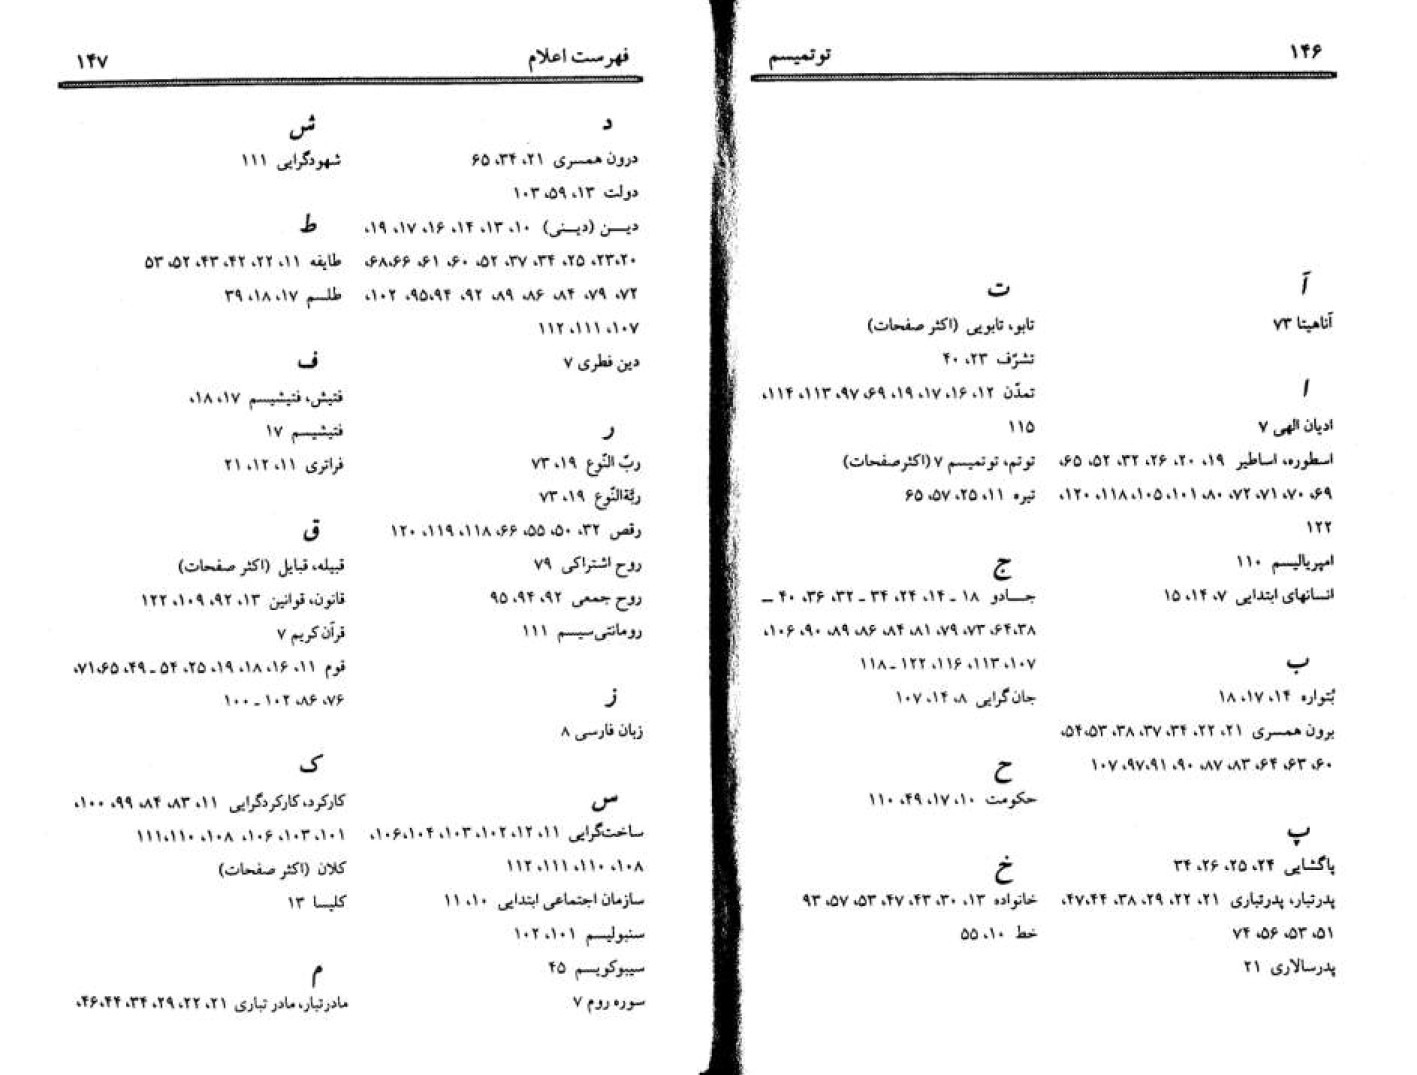 ۱۴۶
توتمیسم
آ
آناهیتا ۷۳
ا
ادیان الهی ۷
اسطوره، اساطیر ۱۹، ۲۰، ۲۶، ۳۲، ۵۲، ۶۵،
۶۹، ۷۰، ۷۱، ۷۲، ۸۰، ۱۰۱، ۱۰۵، ۱۱۸، ۱۲۰،
۱۲۲
امپریالیسم ۱۱۰
انسانهای ابتدایی ۷، ۱۴، ۱۵
ب
بُتواره ۱۴، ۱۷، ۱۸
برون همسری ۲۱، ۲۲، ۳۴، ۳۷، ۳۸، ۵۳،۵۴،
۶۰، ۶۳، ۶۴، ۸۳، ۸۷، ۹۰، ۹۱،۹۷، ۱۰۷
پ
پاگشایی ۲۴، ۲۵، ۲۶، ۳۴
پدرتبار، پدرتباری ۲۱، ۲۲، ۲۹، ۳۸، ۴۴،۴۷،
۵۱، ۵۳، ۵۶، ۷۴
پدرسالاری ۲۱
ت
تابو، تابویی (اکثر صفحات)
تشرّف ۲۳، ۴۰
تمدّن ۱۲، ۱۶، ۱۷، ۱۹، ۶۹، ۹۷، ۱۱۳، ۱۱۴،
۱۱۵
توتم، توتمیسم ۷ (اکثرصفحات)
تیره ۱۱، ۲۵، ۵۷، ۶۵
ج
جـــادو ۱۸ ـ ۱۴، ۲۴، ۳۴ ـ ۳۲، ۳۶، ۴۰ ـ
۳۸،۶۴، ۷۳، ۷۹، ۸۱، ۸۴، ۸۶، ۸۹، ۹۰، ۱۰۶،
۱۰۷، ۱۱۳، ۱۱۶، ۱۲۲ ـ ۱۱۸
جان‌گرایی ۸، ۱۴، ۱۰۷
ح
حکومت ۱۰، ۱۷، ۴۹، ۱۱۰
خ
خانواده ۱۳، ۳۰، ۴۳، ۴۷، ۵۳، ۵۷، ۹۳
خط ۱۰، ۵۵
فهرست اعلام
۱۴۷
د
درون همسری ۲۱، ۳۴، ۶۵
دولت ۱۳، ۵۹، ۱۰۳
دیـــن (دیـــنی) ۱۰، ۱۳، ۱۴، ۱۶، ۱۷، ۱۹،
۲۳،۲۰، ۲۵، ۳۴، ۳۷، ۵۲، ۶۰، ۶۱، ۶۸،۶۶،
۷۲، ۷۹، ۸۴، ۸۶، ۸۹، ۹۲، ۹۵،۹۴، ۱۰۲،
۱۰۷، ۱۱۱، ۱۱۲
دین فطری ۷
ر
ربّ النّوع ۱۹، ۷۳
ربّةالنّوع ۱۹، ۷۳
رقص ۳۲، ۵۰، ۵۵، ۶۶، ۱۱۸، ۱۱۹، ۱۲۰
روح اشتراکی ۷۹
روح جمعی ۹۲، ۹۴، ۹۵
رومانتی‌سیسم ۱۱۱
ز
زبان فارسی ۸
س
ساخت‌گرایی ۱۱، ۱۲، ۱۰۲، ۱۰۳، ۱۰۴،۱۰۶،
۱۰۸، ۱۱۰، ۱۱۱، ۱۱۲
سازمان اجتماعی ابتدایی ۱۰، ۱۱
سنبولیسم ۱۰۱، ۱۰۲
سیبوکویسم ۴۵
سوره روم ۷
ش
شهودگرایی ۱۱۱
ط
طایفه ۱۱، ۲۲، ۴۲، ۴۳، ۵۲، ۵۳
طلسم ۱۷، ۱۸، ۳۹
ف
فتیش، فتیشیسم ۱۷، ۱۸،
فتیشیسم ۱۷
فراتری ۱۱، ۱۲، ۲۱
ق
قبیله، قبایل (اکثر صفحات)
قانون، قوانین ۱۳، ۹۲، ۱۰۹، ۱۲۲
قرآن کریم ۷
قوم ۱۱، ۱۶، ۱۸، ۱۹، ۲۵، ۵۴ ـ ۴۹، ۶۵،۷۱،
۷۶، ۸۶، ۱۰۲ ـ ۱۰۰
ک
کارکرد، کارکردگرایی ۱۱، ۸۳، ۸۴، ۹۹، ۱۰۰،
۱۰۱، ۱۰۳، ۱۰۶، ۱۰۸، ۱۱۰،۱۱۱
کلان (اکثر صفحات)
کلیسا ۱۳
م
مادرتبار، مادر تباری ۲۱، ۲۲، ۲۹، ۳۴، ۴۴،۴۶،